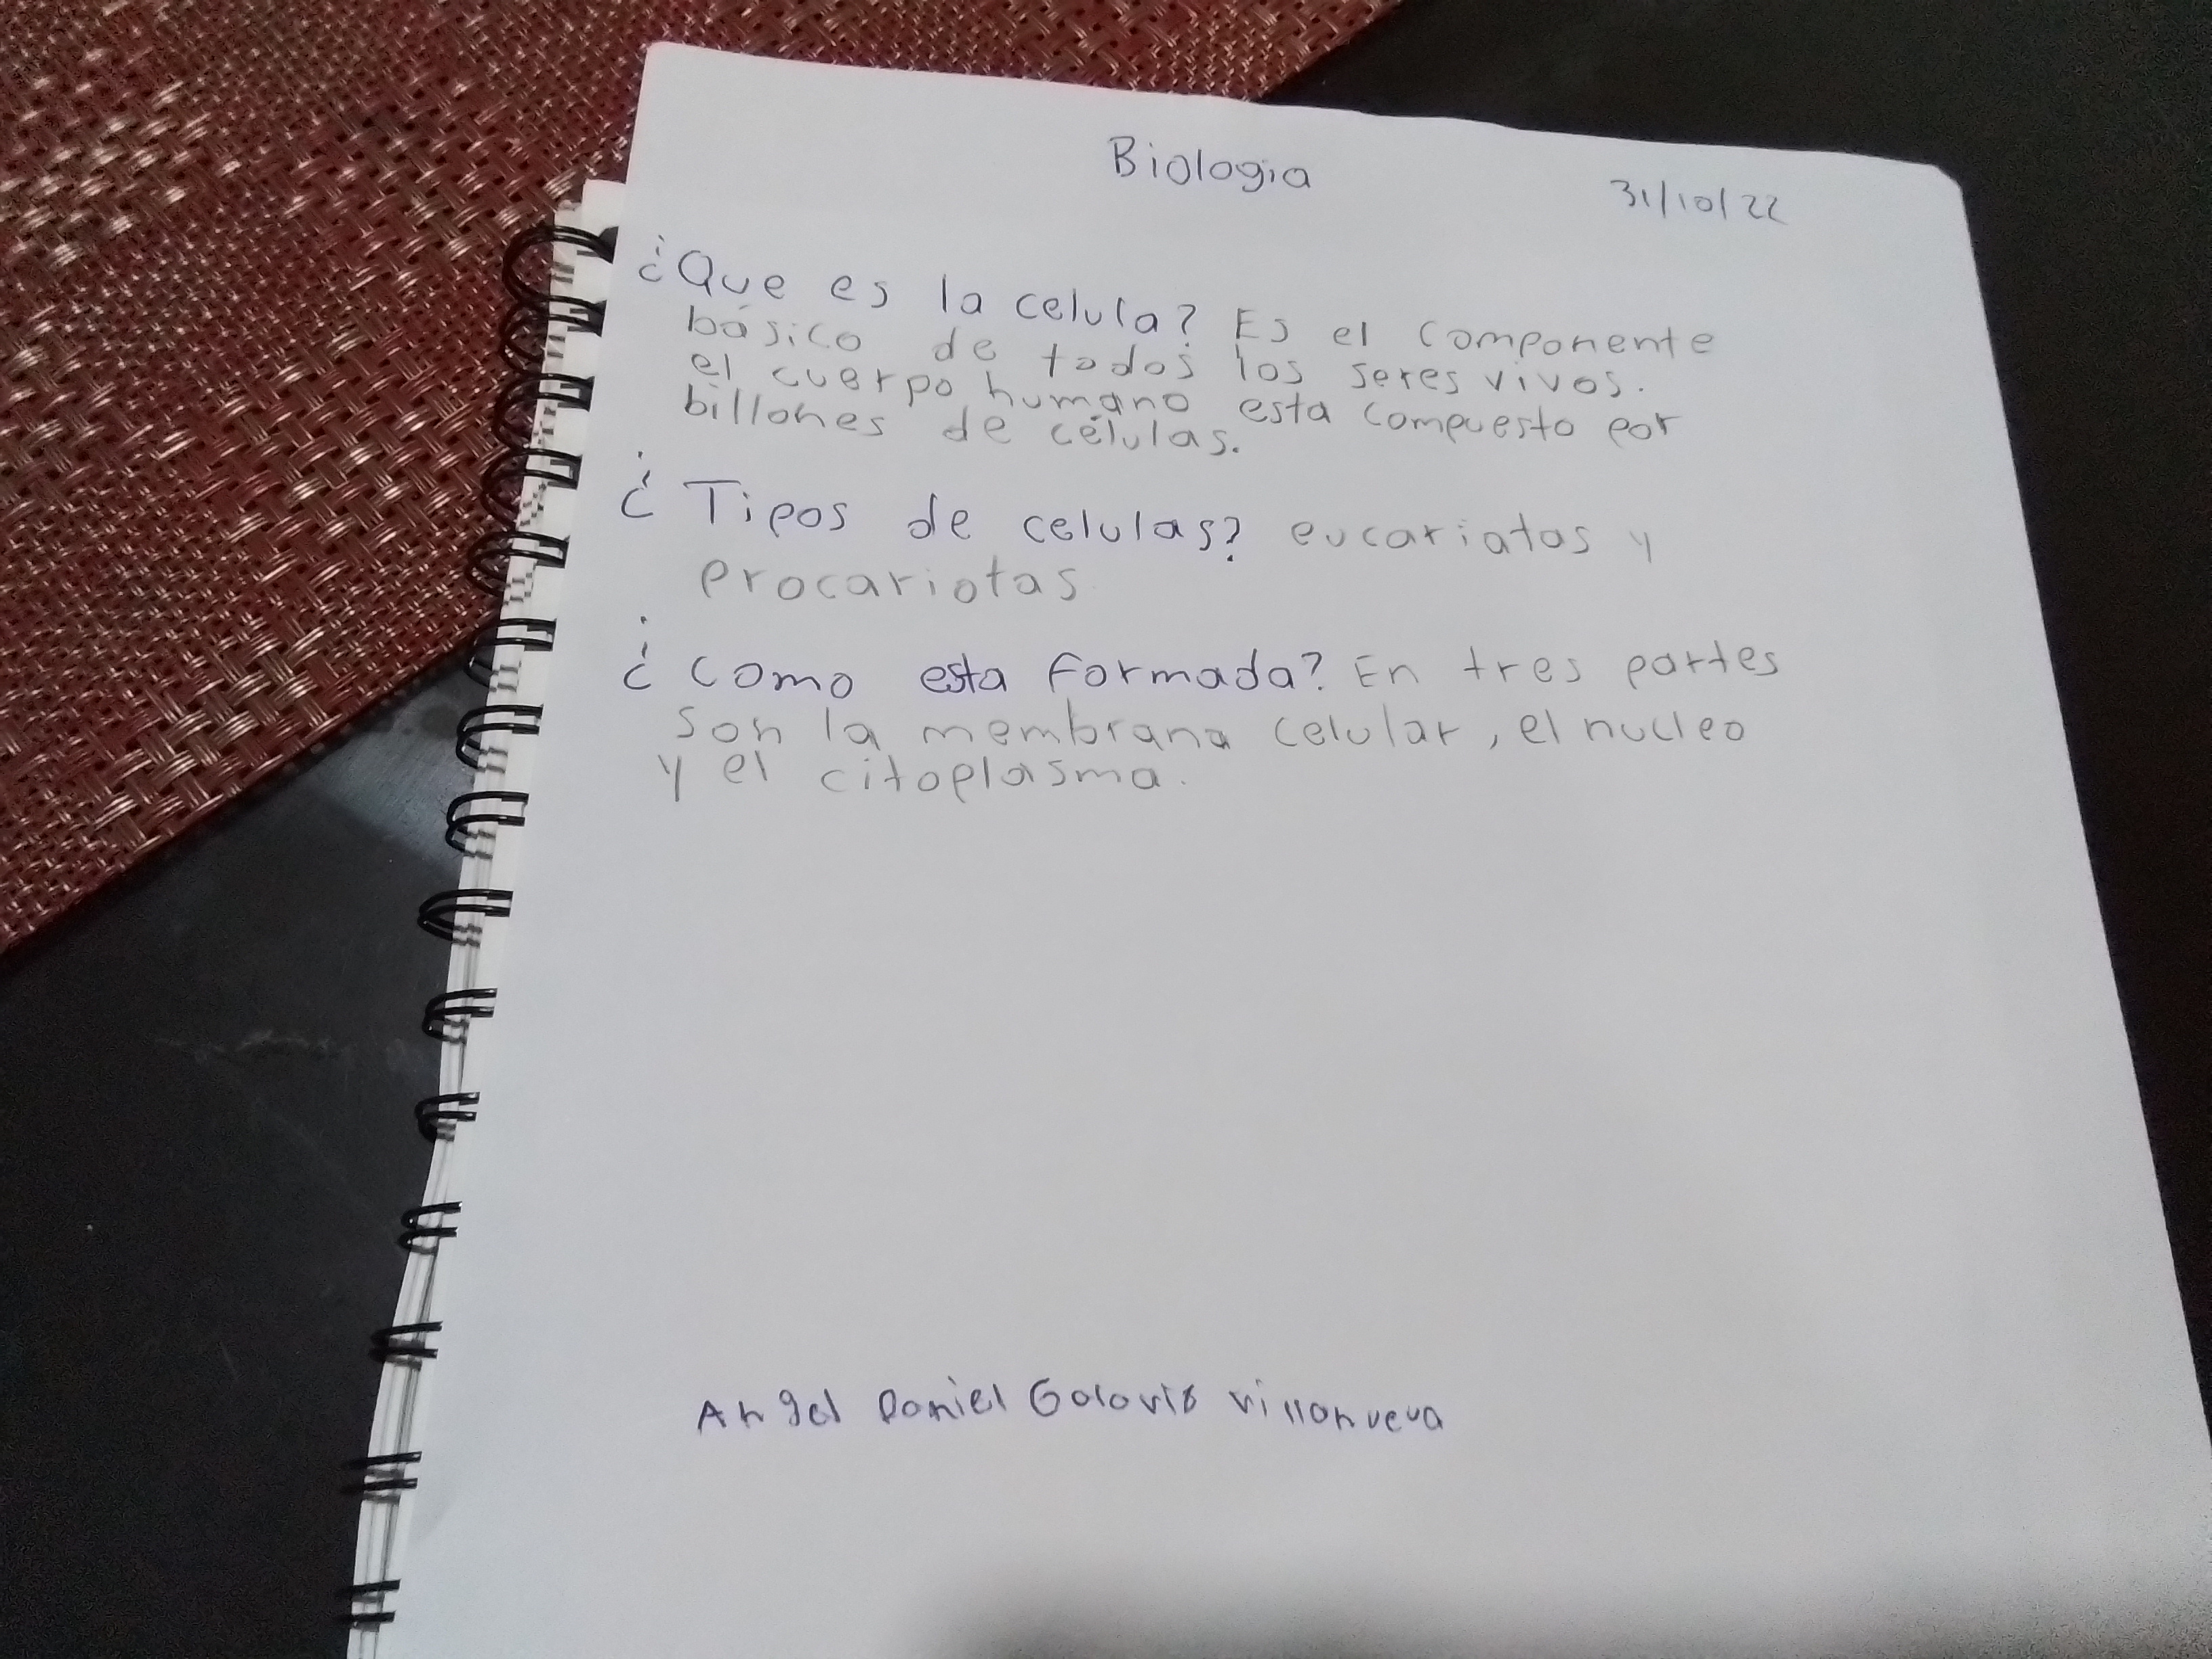 Biologia
31/10/22
¿Que es la celula? Es el componente
básico de todos los seres vivos.
el cuerpo humano esta compuesto por
billones de células.
¿Tipos de celulas? eucariatas y
procariotas
¿como esta formada? En tres partes
son la membrana celular, el nucleo
y el citoplasma.
Angel Daniel villanueva